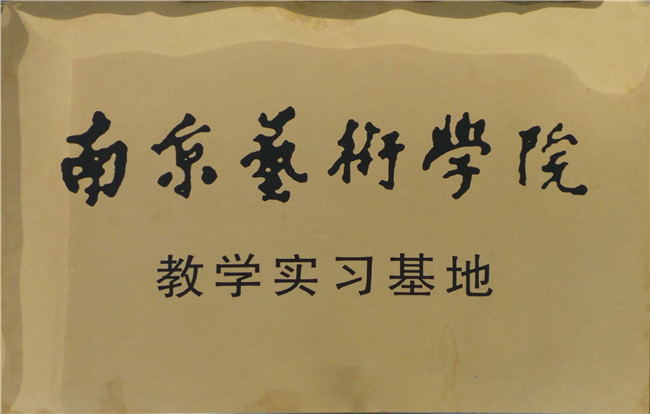 南京藝術學院
教学实习基地